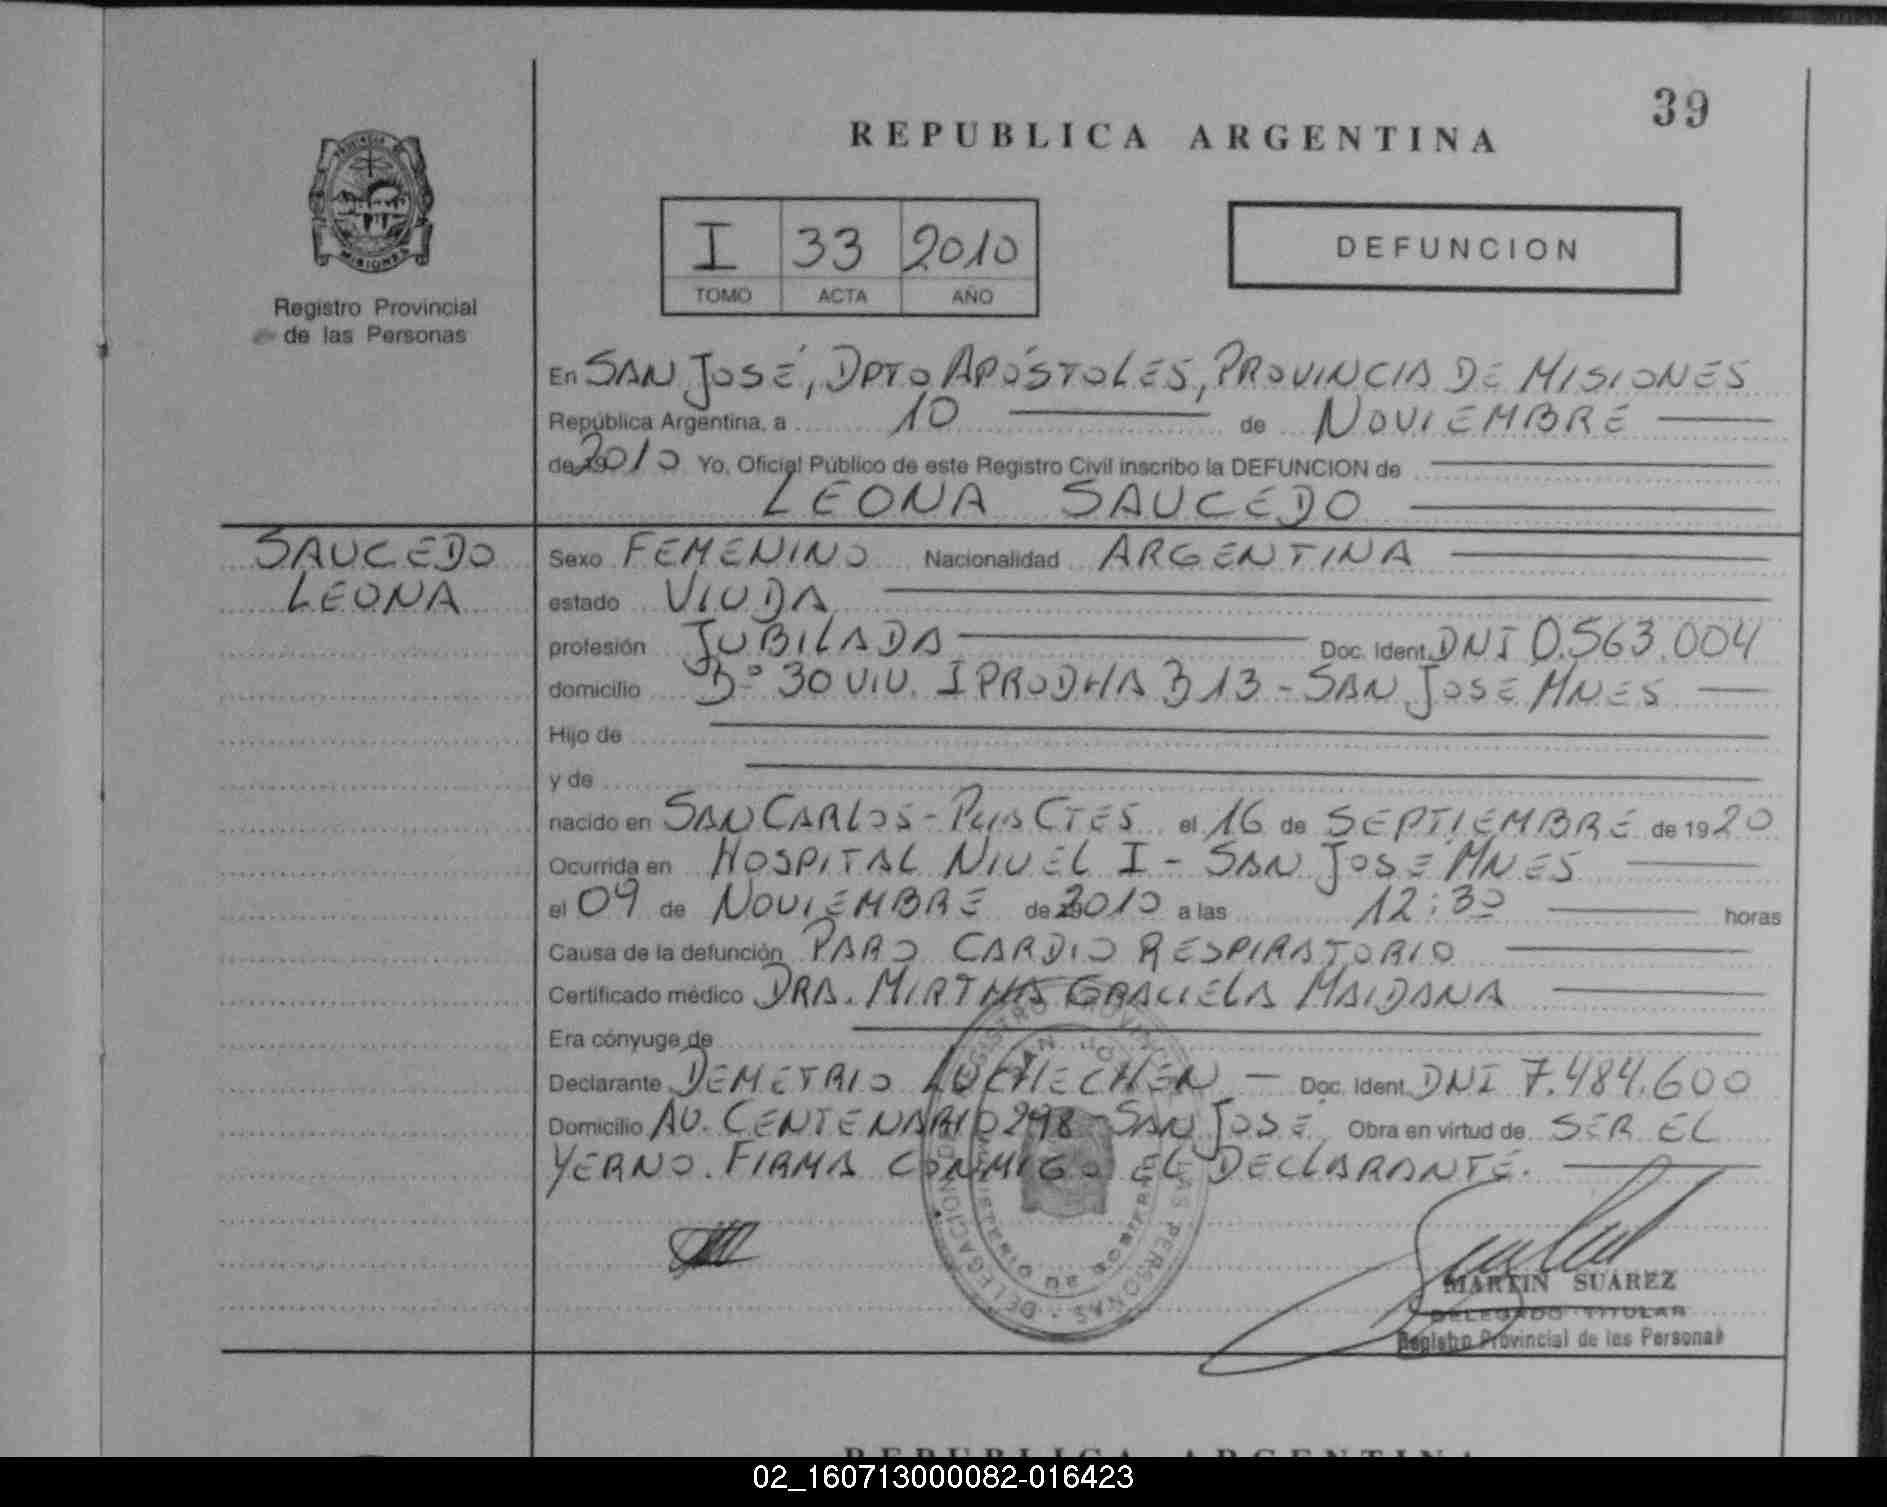 39
REPUBLICA ARGENTINA
I 33 2010
TOMO ACTA AÑO
DEFUNCION
PROVINCIA DE
MISIONES
Registro Provincial
de las Personas
En SAN JOSÉ, DPTO APÓSTOLES, PROVINCIA DE MISIONES
República Argentina, a 10 de NOVIEMBRE
de 2010 Yo, Oficial Público de este Registro Civil inscribo la DEFUNCION de
LEONA SAUCEDO
SAUCEDO
LEONA
Sexo FEMENINO Nacionalidad ARGENTINA
estado VIUDA
profesión JUBILADA Doc. Ident. DNI 0.563.004
domicilio Bº 30 VIV. IPRODHA 313 - SAN JOSE MNES
Hijo de
y de
nacido en SAN CARLOS - CTES el 16 de SEPTIEMBRE de 1920
Ocurrida en HOSPITAL NIVEL I - SAN JOSE MNES
el 09 de NOVIEMBRE de 2010 a las 12:30 horas
Causa de la defunción PARO CARDIO RESPIRATORIO
Certificado médico DRA. MIRTHA GRACIELA MAIDANA
Era cónyuge de
Declarante DEMETRIO LUCHECHEN - Doc. Ident. DNI 7.484.600
Domicilio AV. CENTENARIO 298 - SAN JOSE Obra en virtud de SER EL
YERNO. FIRMA CONMIGO EL DECLARANTE.
REGISTRO PROVINCIAL DE LAS PERSONAS - DELEGACION
SAN JOSE
MINISTERIO DE GOBIERNO
MARTIN SUAREZ
DELEGADO TITULAR
Registro Provincial de las Personas
REPUBLICA ARGENTINA
02_160713000082-016423